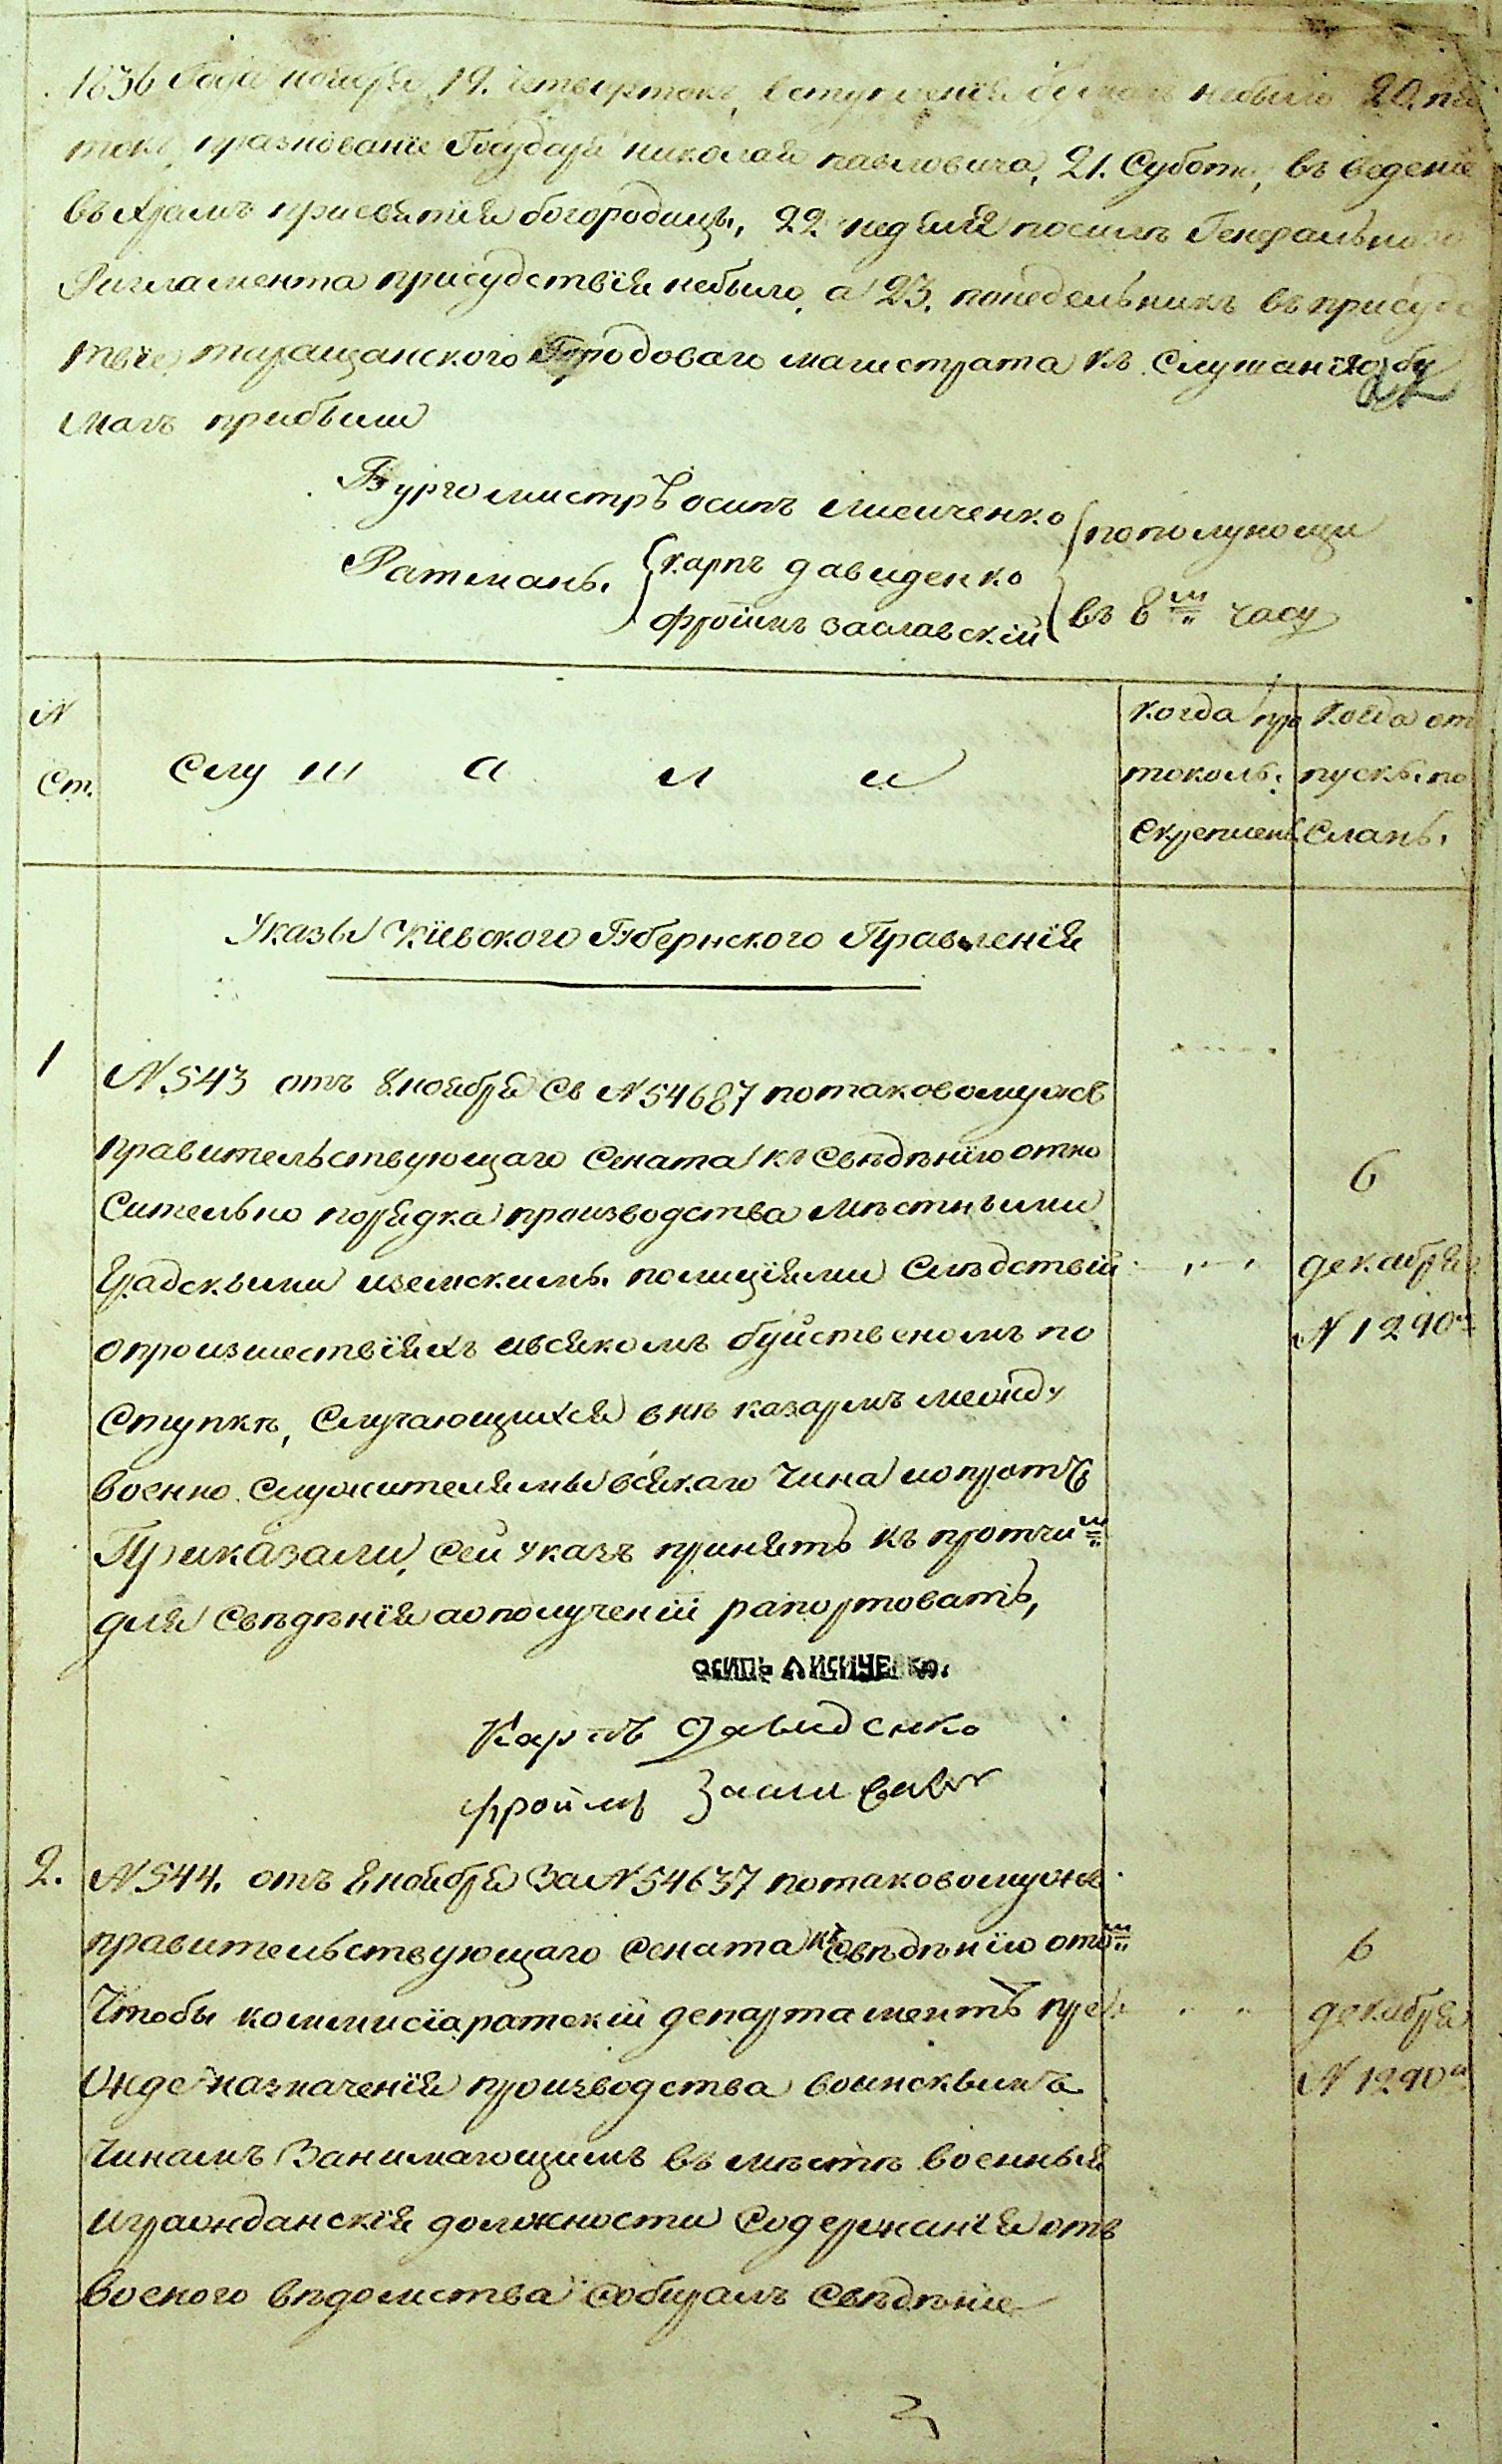 1836 Года ноября 19. четвертокъ, вступленія бумагъ небыло 20. пя
токъ, празнованіе Государя николая павловича, 21. Субота, въ ведение
въ храмъ присвятія богородицы, 22 неделя посилъ Генеральнаго
Ригламента присудствія небыло, а 23. понедельникъ въ присудс
твіе таращанского Городоваго магистрата къ слушанію бу
магъ прибыли
Бургомистръ осипъ лисиченко
пополуночи
Ратманъ.
карпъ давиденко
фроимъ заславскій
въ 8м часу
N
Ст.
Слу ш а л и
когда про
токолъ.
скрепленъ
Когда от
пускъ. по
сланъ.
Указы Кіевского Губернского Правленія
1
N 543 отъ 8 ноября съ N 54687 потаковомужъ
правительствующаго Сената къ свѣдѣнію отно
сительно порядка производства мѣстными
градскыми иземскимъ. полиціями слѣдствій
опроизшествіяхъ ивсякомъ буйственомъ по
ступкѣ, случающихся внѣ казармъ между
военно служителями всякаго чина ипротч
Приказали, сей указъ принять къ протчим
для свѣдѣнія аополученіи рапортовать,
6
декабря
N 1290
осипъ лисиченко.
Карпъ Давиденко
фроимъ Заславскій
2.
N 544. отъ 8 ноября за N 54637 потаковомужъ
правительствующаго Сената къ свѣдѣнію отом
Чтобы коммисіаратскій департаментъ пре
жде назначенія производства воинскымъ
чинамъ занимающимъ въ мѣстѣ военныя
игражданскія должности содержанія отъ
военого вѣдомства собиралъ свѣдѣніе
6
декабря
N 1290